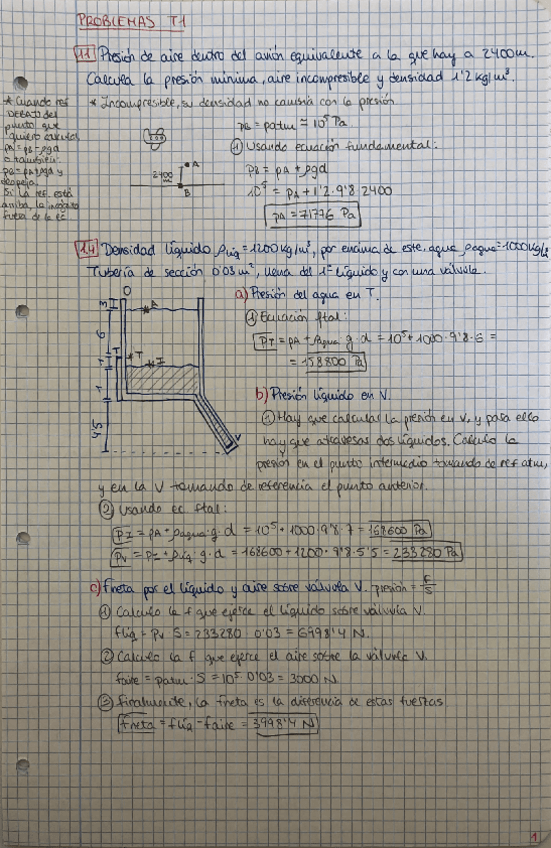 PROBLEMAS T1
1.1 Presión de aire dentro del avión equivalente a la que hay a 2400m.
Calcula la presión mínima, aire incompresible y densidad 1'2 kg/m³.
* Cuando ref
DEBAJO del
punto que
quiero calcular
PA = PB - ρgd
o también:
PB = PA + ρgd y
despeja.
Si la ref. está
arriba, la incógnita
fuera de la ec
* Incompresible, su densidad no cambia con la presión
PB = Patm ≈ 10⁵ Pa
① Usando ecuación fundamental:
PB = PA + ρgd
10⁵ = PA + 1'2·9'8·2400
PA = 71776 Pa
A
2400
B
1.4 Densidad líquido ρliq = 1200 kg/m³, por encima de este, agua ρagua = 1000 kg/m³
Tubería de sección 0'03 m², llena del 1er líquido y con una válvula.
a) Presión del agua en T.
① Ecuación ftal:
PT = PA + ρagua · g · d = 10⁵ + 1000 · 9'8 · 6 =
= 158800 Pa
O
A
6
T
I
1
4'5
V
b) Presión líquido en V.
① Hay que calcular la presión en V, y para ello
hay que atravesar dos líquidos. Calculo la
presión en el punto intermedio tomando de ref atm,
y en la V tomando de referencia el punto anterior.
② Usando ec ftal:
PI = PA + ρagua · g · d = 10⁵ + 1000 · 9'8 · 7 = 168600 Pa
PV = PI + ρliq · g · d = 168600 + 1200 · 9'8 · 5'5 = 233280 Pa
c) Fneta por el líquido y aire sobre válvula V. presión = F/S
① Calculo la f que ejerce el líquido sobre válvula V.
fliq = PV · S = 233280 · 0'03 = 6998'4 N.
② Calculo la f que ejerce el aire sobre la válvula V.
faire = Patm · S = 10⁵ · 0'03 = 3000 N
③ Finalmente, la fneta es la diferencia de estas fuerzas
Fneta = fliq - faire = 3998'4 N
1